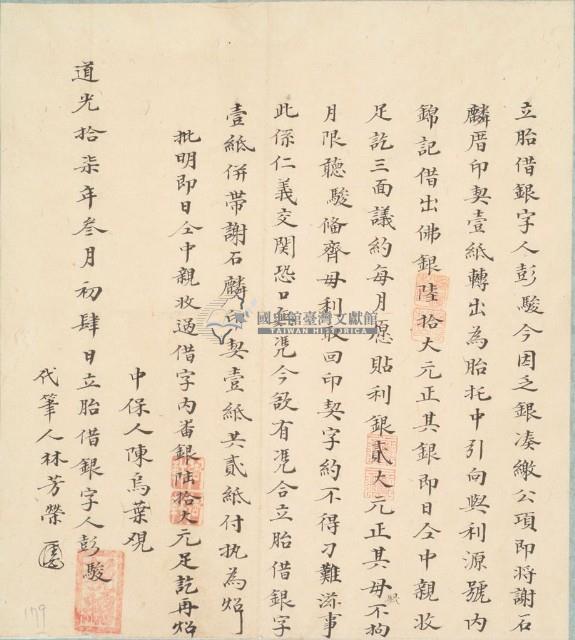 立胎借銀字人彭駿今因乏銀湊繳公項即將謝石
麟厝印契壹紙轉出為胎托中引向與利源號內
錦記借出佛銀陸拾大元正其銀即日仝中親收
足訖三面議約每月愿貼利銀貳大元正其毋不拘
限
月限聽駿俻齊毋利取回印契字約不得刁難滋事
此係仁義交関恐口無憑今欲有憑合立胎借銀字
壹紙併帶謝石麟印契壹紙共貳紙付执為炤
批明即日仝中親收過借字内畨銀陸拾大元足訖再炤
中保人陳烏葉
道光拾柒年叁月初肆日立胎借銀字人彭駿
代筆人林芳榮
國史館臺灣文獻館
TAIWAN HISTORICA
179